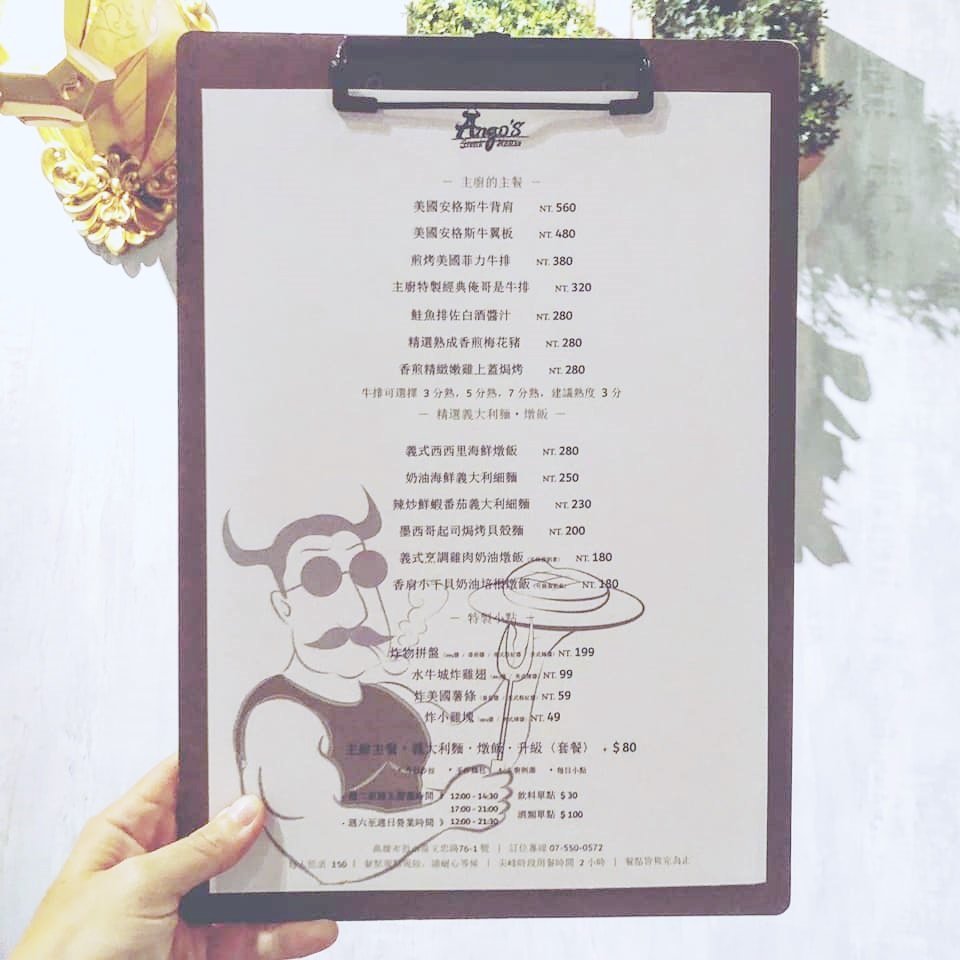 Ango's
— 主廚的主餐 —
美國安格斯牛背肩 NT. 560
美國安格斯牛翼板 NT. 480
煎烤美國菲力牛排 NT. 380
主廚特製經典俺哥是牛排 NT. 320
鮭魚排佐白酒醬汁 NT. 280
精選熟成香煎梅花豬 NT. 280
香煎精緻嫩雞上蓋焗烤 NT. 280
牛排可選擇 3分熟, 5分熟, 7分熟, 建議熟度 3分
— 精選義大利麵・燉飯 —
義式西西里海鮮燉飯 NT. 280
奶油海鮮義大利細麵 NT. 250
辣炒鮮蝦番茄義大利細麵 NT. 230
墨西哥起司焗烤貝殼麵 NT. 200
義式烹調雞肉奶油燉飯 NT. 180
香煎小干貝奶油培根燉飯 NT. 180
— 特製小點 —
炸物拼盤 NT. 199
水牛城炸雞翅 NT. 99
炸美國薯條 NT. 59
炸小雞塊 NT. 49
主廚主餐・義大利麵・燉飯・升級〈套餐〉 + $80
・每日小點
12:00 - 14:30 飲料單點 $30
17:00 - 21:00
・週六至週日營業時間 》 12:00 - 21:30 酒類單點 $100
76-1號 | 訂位專線 07-550-0572
150 | 餐點現點現做, 請耐心等候 | 尖峰時段用餐時間 2小時 | 餐點售完為止